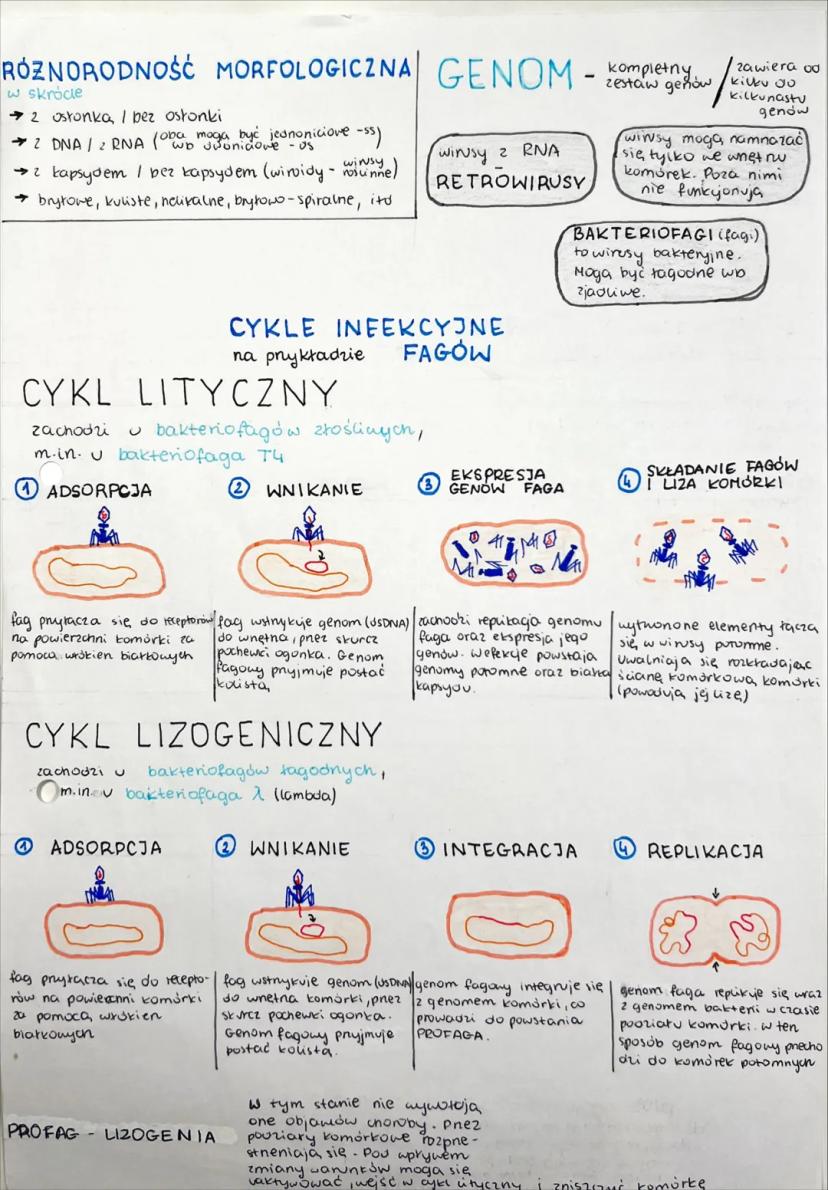 RÓŻNORODNOŚĆ MORFOLOGICZNA
w skrócie
→ z osłonką / bez osłonki
→ z DNA / z RNA (oba mogą być jednoniciowe -ss)
lub dwuniciowe - ds
→ z kapsydem / bez kapsydem (wiroidy - wirusy
roślinne)
→ bryłowe, kuliste, helikalne, bryłowo-spiralne, itd
GENOM - kompletny
zestaw genów / zawiera od
kilku do
kilkunastu
genów
wirusy z RNA
-
RETROWIRUSY
wirusy mogą namnażać
się tylko we wnętrzu
komórek. Poza nimi
nie funkcjonują
BAKTERIOFAGI (fagi)
to wirusy bakteryjne.
Mogą być łagodne lub
zjadliwe.
CYKLE INFEKCYJNE
na przykładzie FAGÓW
CYKL LITYCZNY
zachodzi u bakteriofagów złośliwych,
m.in. u bakteriofaga T4
1 ADSORPCJA
fag przyłącza się do receptorów
na powierzchni komórki za
pomocą włókien białkowych
2 WNIKANIE
fag wstrzykuje genom (dsDNA)
do wnętrza, przez skurcz
pochewki ogonka. Genom
fagowy przyjmuje postać
kolistą
3 EKSPRESJA
GENÓW FAGA
zachodzi replikacja genomu
faga oraz ekspresja jego
genów. W efekcie powstają
genomy potomne oraz białka
kapsydu.
4 SKŁADANIE FAGÓW
I LIZA KOMÓRKI
wytworzone elementy łączą
się w wirusy potomne.
Uwalniają się rozkładając
ścianę komórkową komórki
(powodują jej lizę)
CYKL LIZOGENICZNY
zachodzi u bakteriofagów łagodnych,
m.in. u bakteriofaga λ (lambda)
1 ADSORPCJA
fag przyłącza się do recepto-
rów na powierzchni komórki
za pomocą włókien
białkowych
2 WNIKANIE
fag wstrzykuje genom (dsDNA)
do wnętrza komórki, przez
skurcz pochewki ogonka.
Genom fagowy przyjmuje
postać kolistą.
3 INTEGRACJA
genom fagowy integruje się
z genomem komórki, co
prowadzi do powstania
PROFAGA.
4 REPLIKACJA
genom faga replikuje się wraz
z genomem bakterii w czasie
podziału komórki. W ten
sposób genom fagowy przecho
dzi do komórek potomnych
PROFAG - LIZOGENIA
W tym stanie nie wywołują
one objawów choroby. Przez
podziały komórkowe rozprze-
strzeniają się. Pod wpływem
zmiany warunków mogą się
uaktywować, wejść w cykl lityczny i zniszczyć komórkę